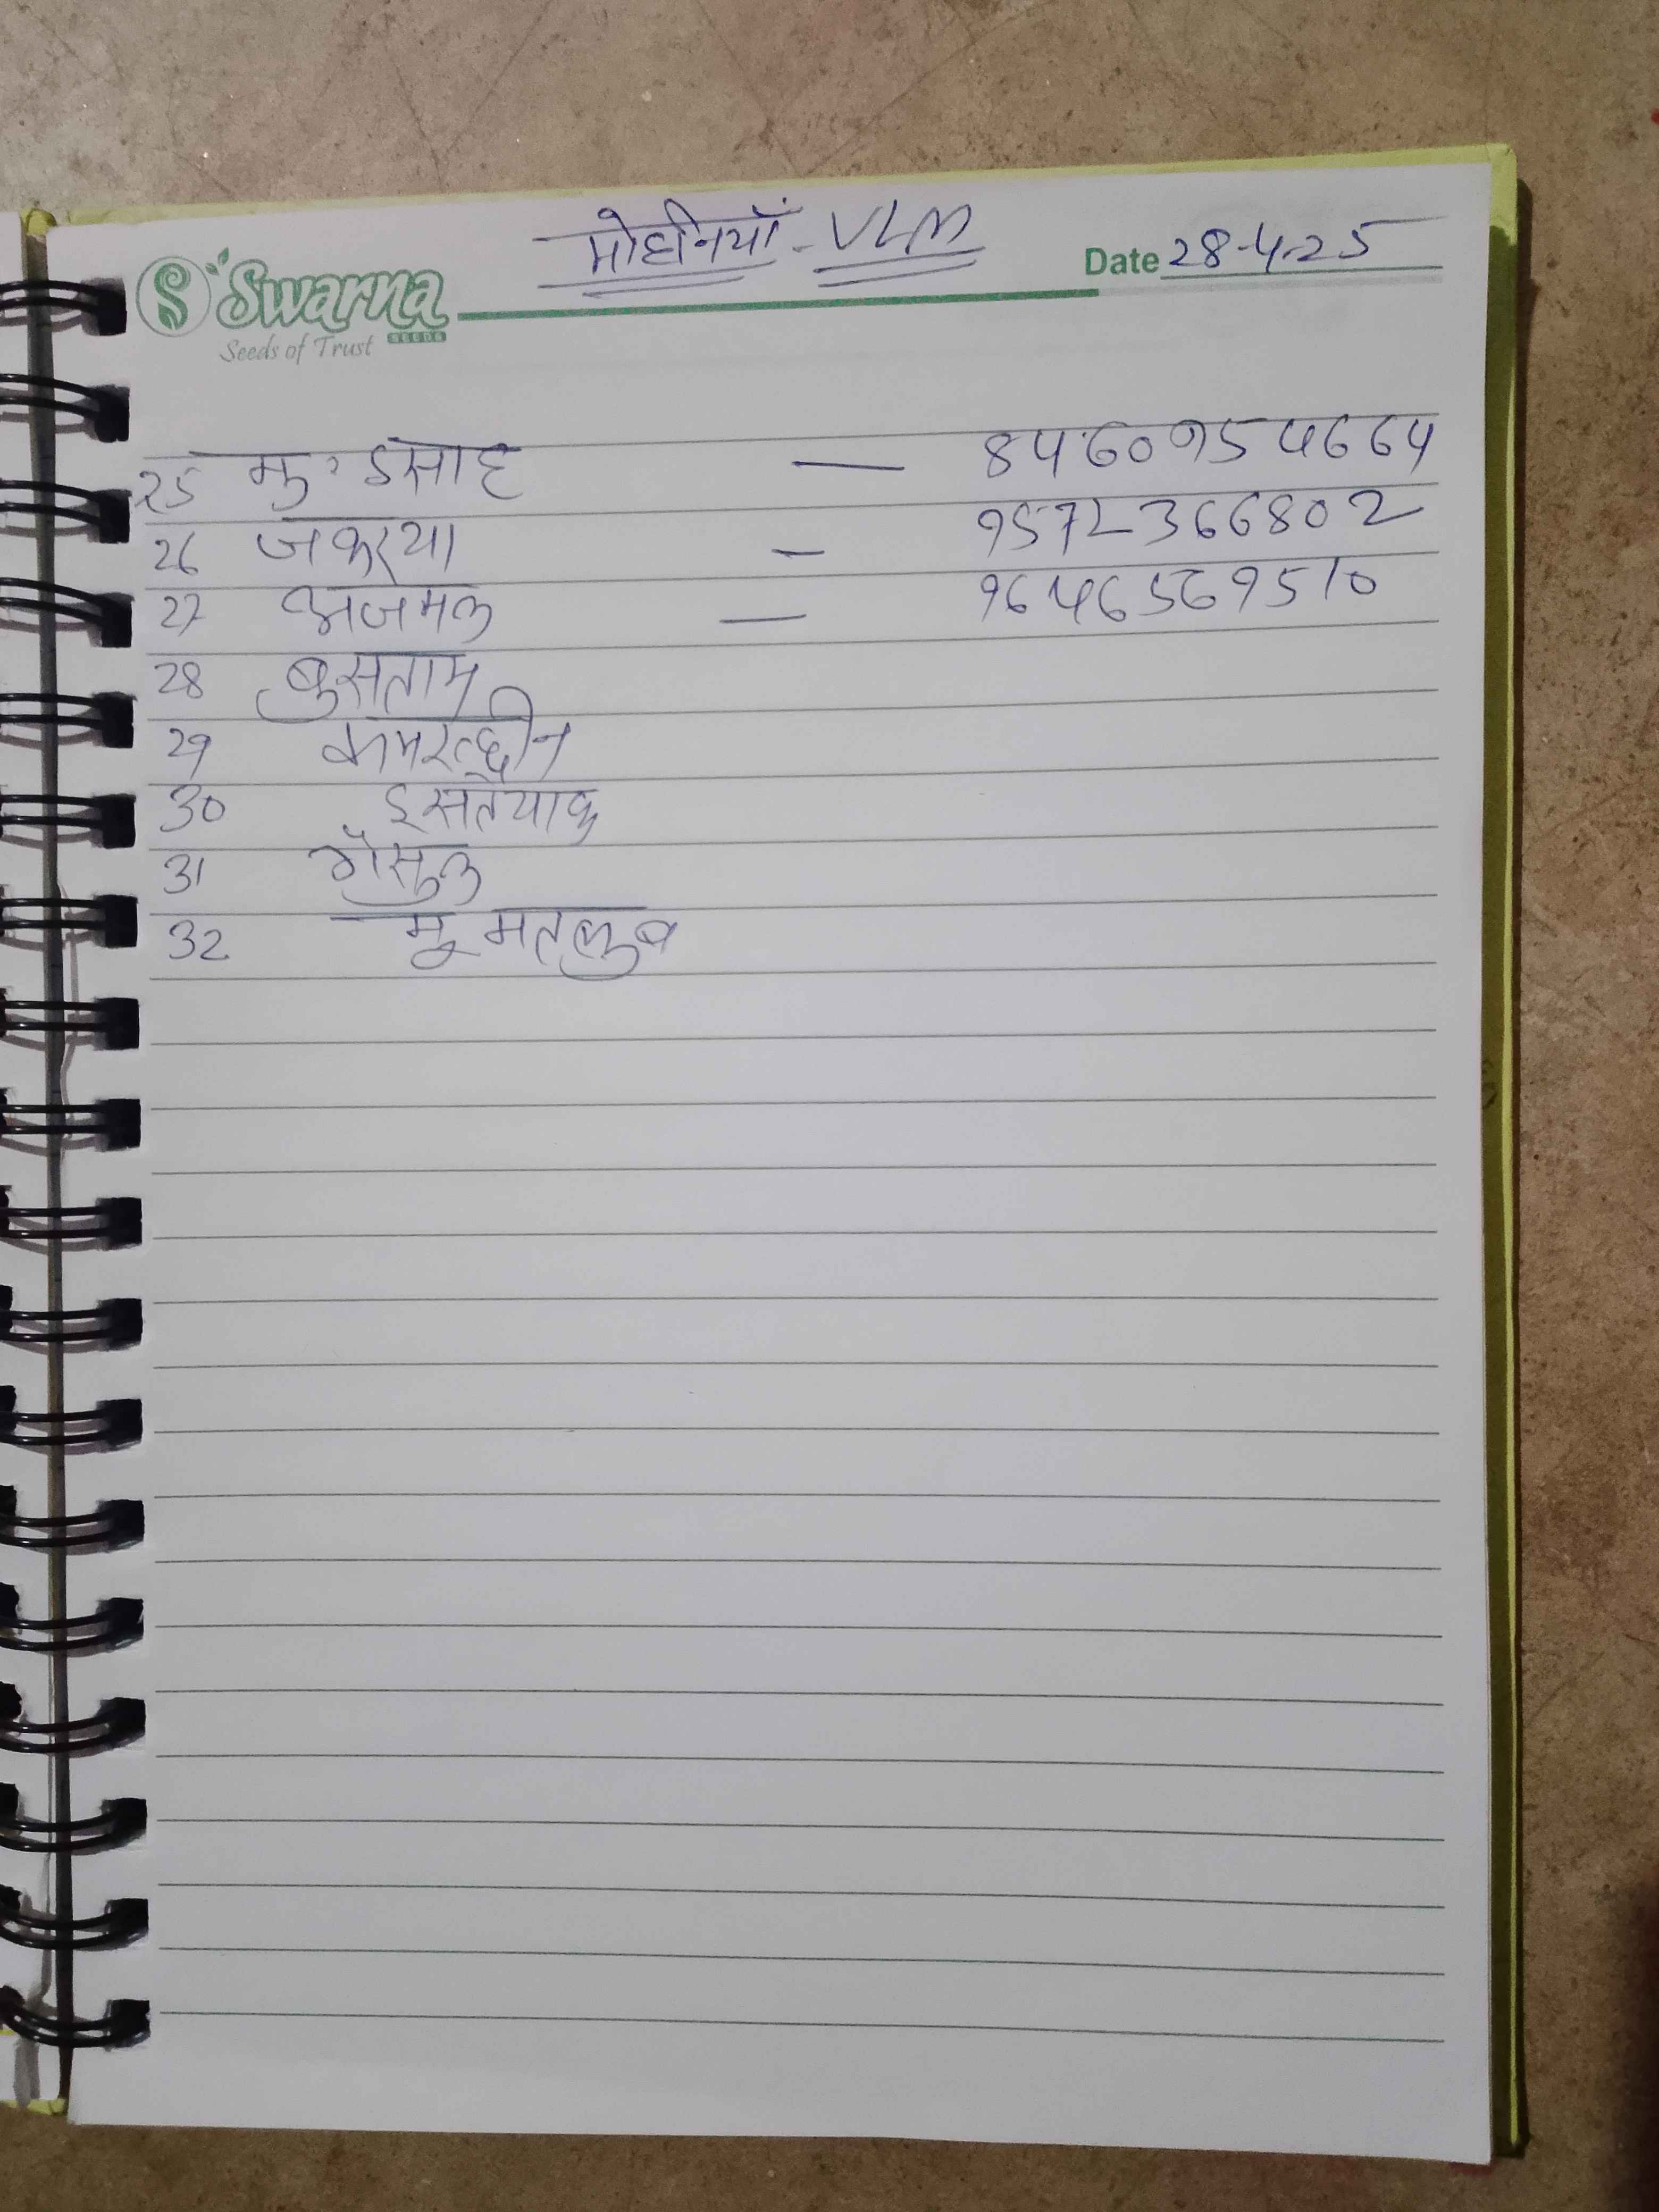 मोहनियाँ - VLM
Swarna
SEEDS
Seeds of Trust
Date 28-4-25
25 मु॰ इसाह — 8460954664
26 जकरया — 9572366802
27 अजमल — 9646569510
28 बुसताम
29 कमरुद्दीन
30 इसतेयाक
31 गौसुल
32 मु मतलुब